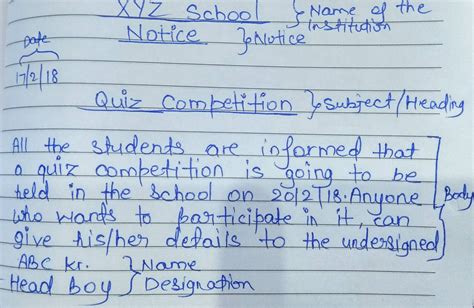 XYZ School } Name of the Institution
Notice } Notice
Date
17/2/18
Quiz Competition } Subject/Heading
All the students are informed that
a quiz competition is going to be
held in the school on 20/2/18. Anyone
who wants to participate in it, can
give his/her details to the undersigned
Body
ABC kr. } Name
Head Boy } Designation